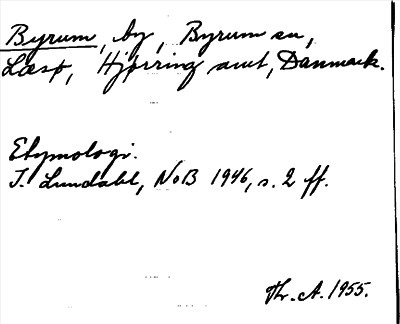 Byrum, by, Byrum sn,
Læsø, Hjørring amt, Danmark.
Etymologi.
I. Lundahl, NoB 1946, s. 2 ff.
Thr. A. 1955.